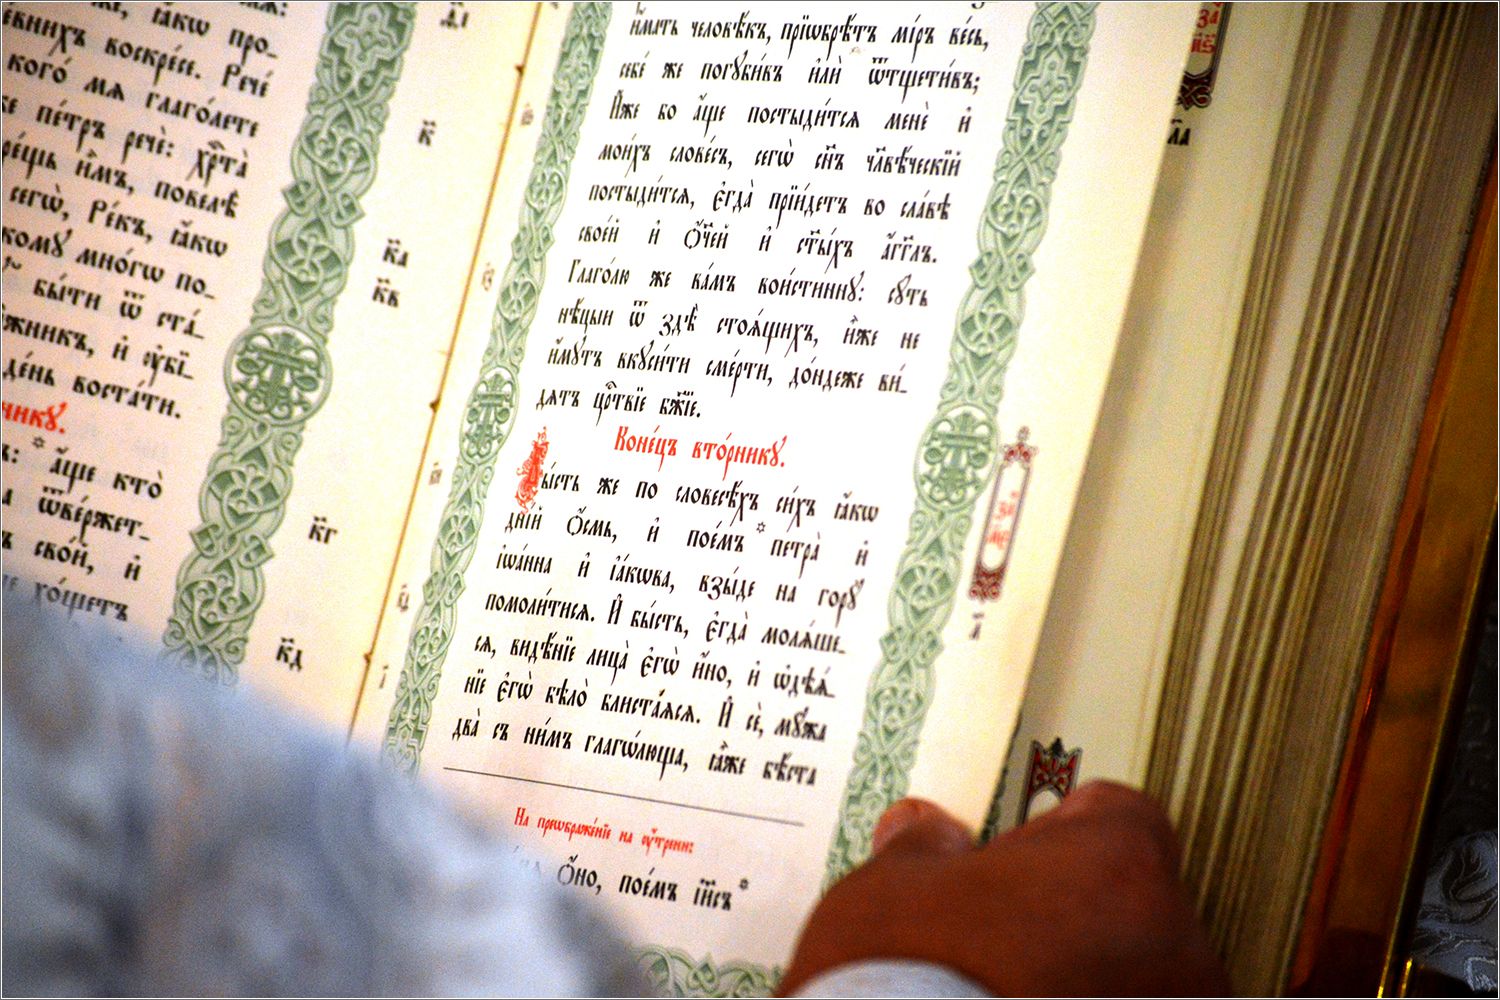 ꙗ҆́кѡ про_
воскре́се. Рече́
кого́ мѧ глаго́лете
пе́тръ речѐ: хрⷭ҇та̀
и҆̀мъ, повелѣ̀
сегѡ̀, Ре́къ, ꙗ҆́кѡ
мно́гѡ по_
бы́ти ѿ ста́_
и҆ ᲂу҆бї_
де́нь воста́ти.
а҆́ще кто̀
ѿве́ржет_
сво́й, и҆
хо́щетъ
к҃
к҃а
к҃в
к҃г
к҃д
и҆́мать человѣ́къ, прїѡбрѣ́тъ мі́ръ ве́сь,
себе́ же погꙋби́въ и҆лѝ ѿтщети́въ;
И҆́же бо а҆́ще постыди́тсѧ менѐ и҆
мои́хъ слове́съ, сегѡ̀ сн҃ъ чл҃вѣ́ческїй
постыди́тсѧ, є҆гда̀ прїи́детъ во сла́вѣ
свое́й и҆ Ѻ҆́ч҃ей и҆ ст҃ы́хъ а҆́гг҃лъ.
Глаго́лю же ва́мъ вои́стиннꙋ: сꙋ́ть
нѣ́цыи ѿ здѣ̀ стоѧ́щихъ, и҆̀же не
и҆́мꙋтъ вкꙋси́ти сме́рти, до́ндеже ви́_
дѧтъ црⷭ҇твїе бж҃їе.
Коне́цъ вто́рникꙋ.
Бы́сть же по словесѣ́хъ си́хъ ꙗ҆́кѡ
дні́й Ѻ҆́смь, и҆ пое́мъ * петра̀ и҆
і҆ѡа́нна и҆ і҆а́кѡва, взы́де на горꙋ̀
помоли́тисѧ. И҆ бы́сть, є҆гда̀ молѧ́ше_
сѧ, видѣ́нїе лица̀ є҆гѡ̀ и҆́но, и҆ ѡ҆дѣѧ́_
нїе є҆гѡ̀ бѣло̀ блиста́ѧсѧ. И҆ сѐ, мꙋ̑жа
два̀ съ ни́мъ глагѡ́люща, ꙗ҆̀же бѣ́ста
На преѡбраже́нїе на ᲂу҆́трени:
Ѻ҆́но, пое́мъ і҆и҃съ *